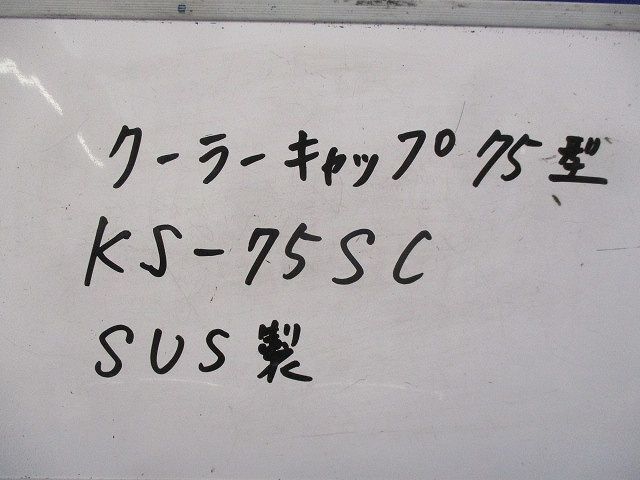 クーラーキャップ75型
KS-75SC
SUS製